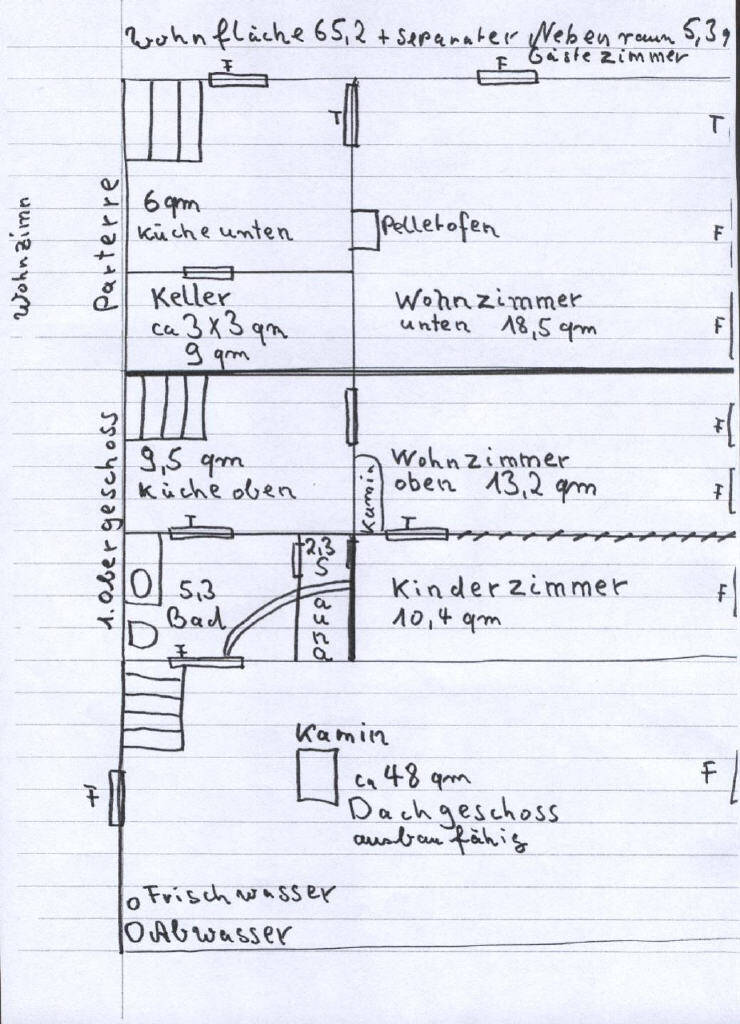 Wohnfläche 65,2 + separater Nebenraum 5,39
Gästezimmer
F
F
T
T
6 qm
Küche unten
Pelletofen
F
Wohnzimn
Parterre
Keller
ca 3 x 3 qm
9 qm
Wohnzimmer
unten 18,5 qm
F
1. Obergeschoss
9,5 qm
Küche oben
Kamin
Wohnzimmer
oben 13,2 qm
F
F
T
T
5,3
Bad
2,3
F
Kinderzimmer
10,4 qm
F
Kamin
ca 48 qm
Dachgeschoss
ausbaufähig
F
F
o Frischwasser
O Abwasser